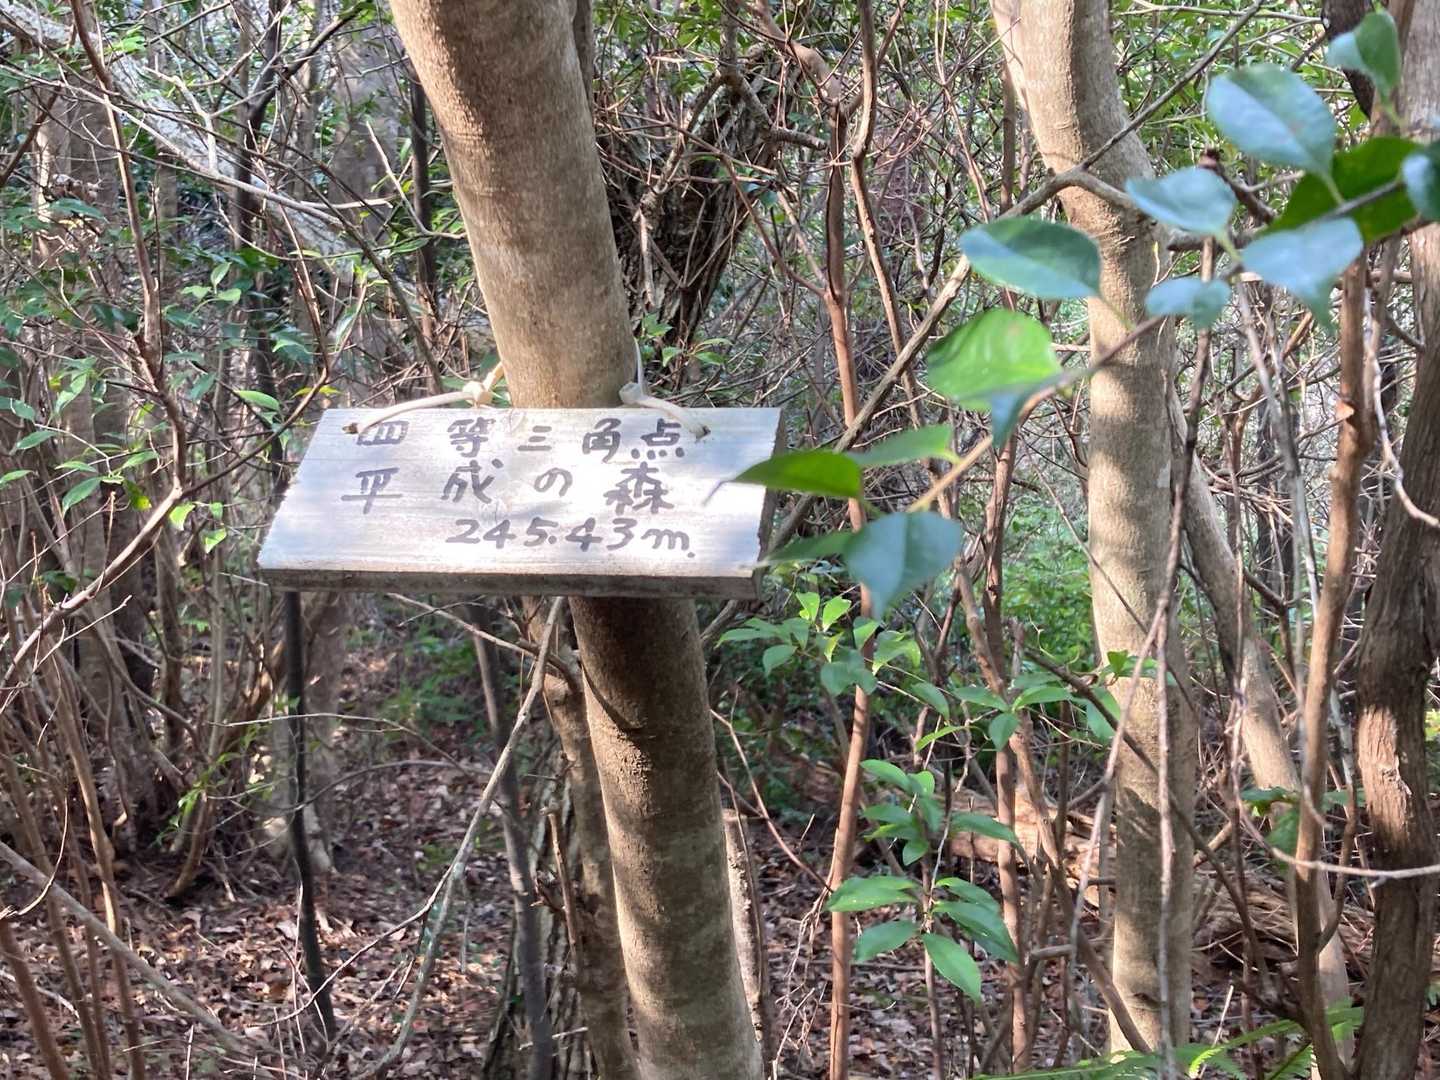 四等三角点
平成の森
245.43m.